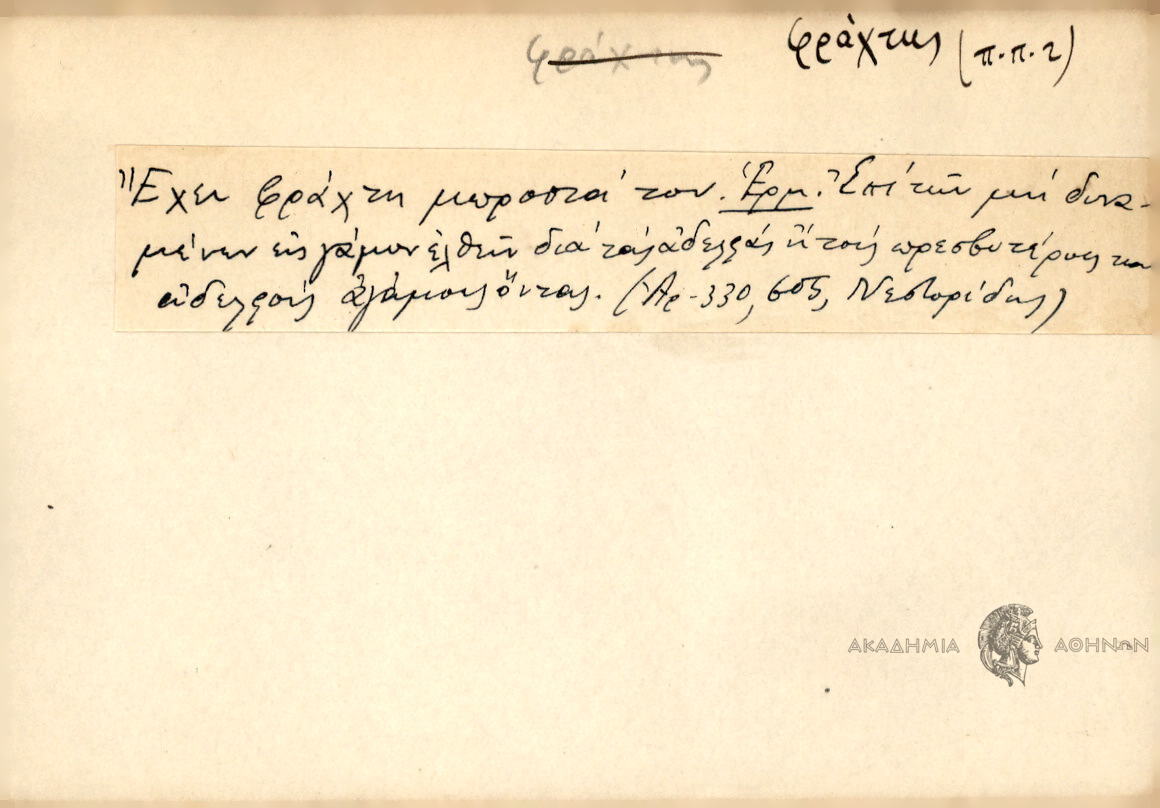 φράχτης φράχτης (π.π.2)
Ἔχει φράχτη μπροστά του. Ἑρμ. Ἐπὶ τῶν μὴ δυνα-
μένων εἰς γάμον ἐλθεῖν διὰ τὰς ἀδελφάς ἢ τοὺς πρεσβυτέρους των
ἀδελφοὺς ἀγάμους ὄντας. (Ἀρ. 330, 605, Νεστορίδης)
ΑΚΑΔΗΜΙΑ ΑΘΗΝΩΝ